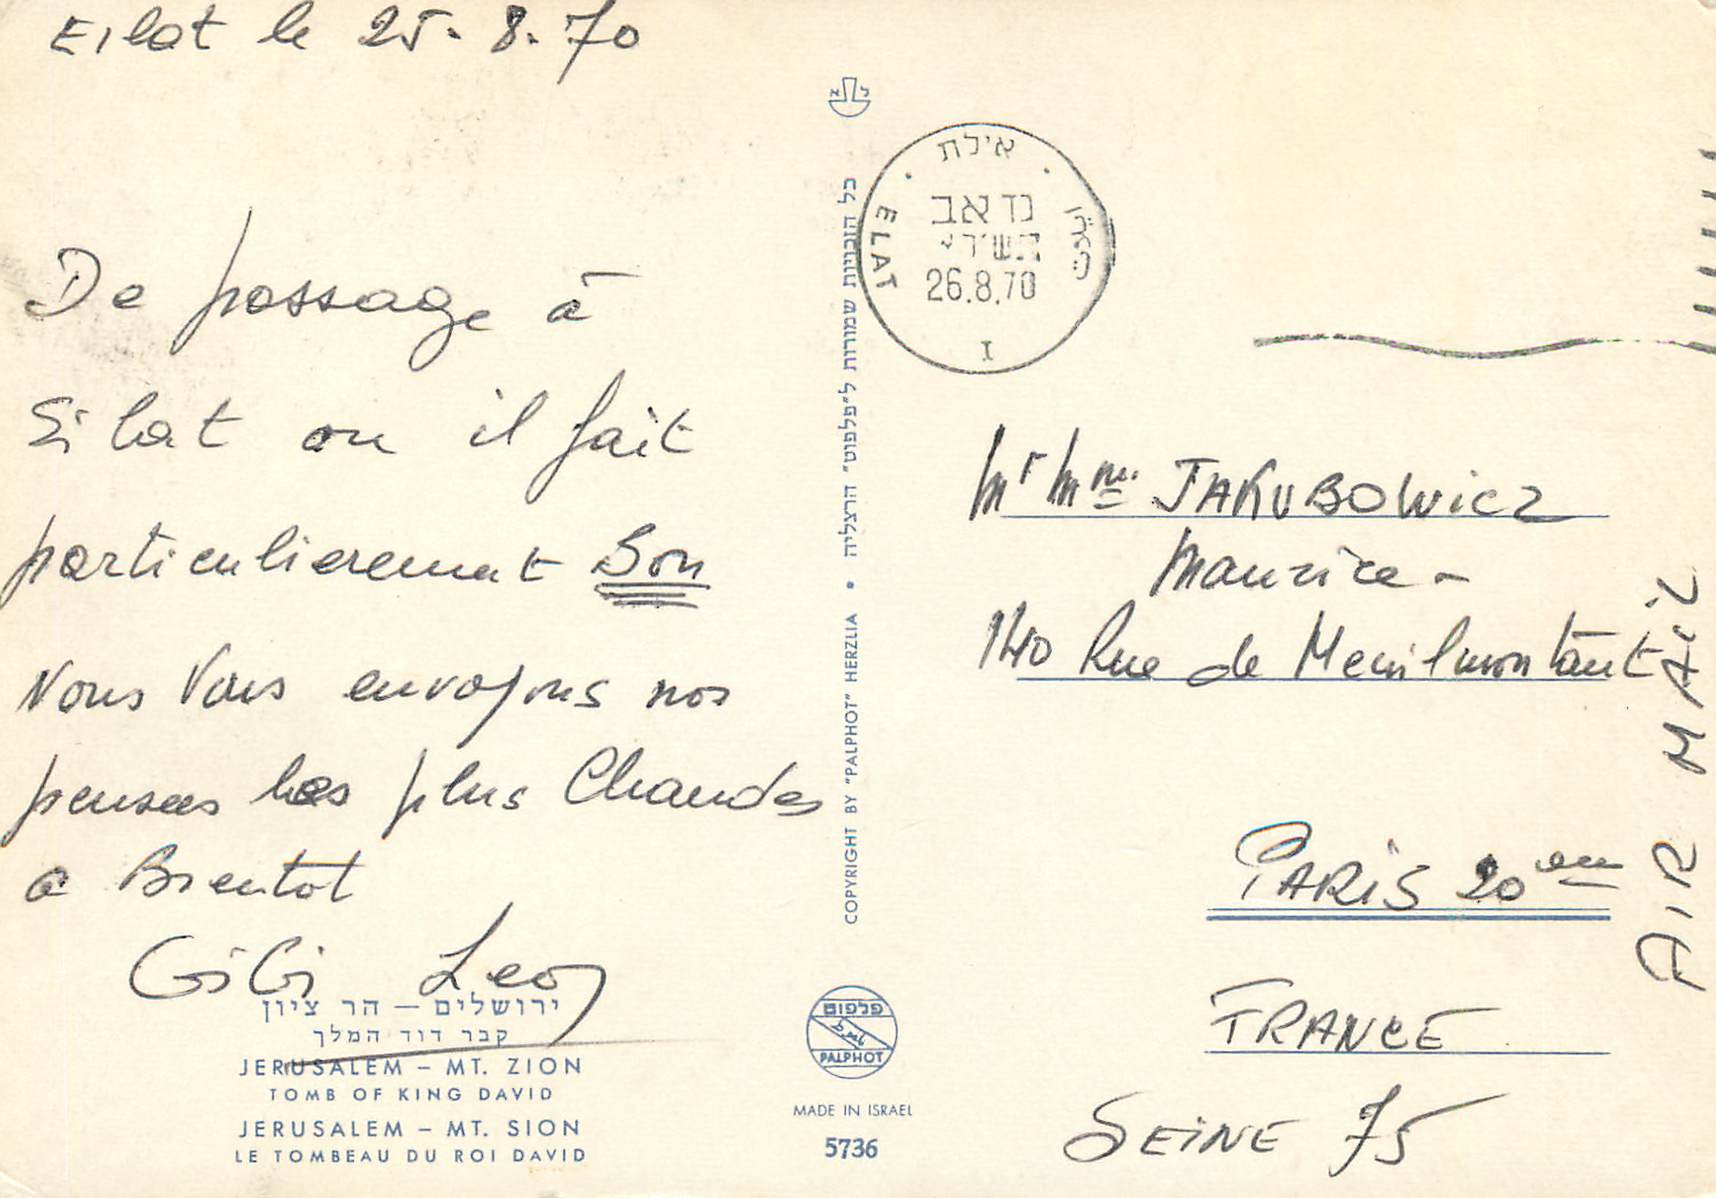 Eilat le 25.8.70
De passage à
Eilat ou il fait
particulierement Bon
Nous Vous envoyons nos
pensees les plus Chaudes
a Bientot
GiGi Leon
ירושלים — הר ציון
קבר דוד המלך
JERUSALEM – MT. ZION
TOMB OF KING DAVID
JERUSALEM – MT. SION
LE TOMBEAU DU ROI DAVID
כל הזכויות שמורות ל"פלפוט" הרצליה • COPYRIGHT BY "PALPHOT" HERZLIA
פלפוט
PALPHOT
MADE IN ISRAEL
5736
אילת
ELAT
כד אב
תש"ל
26.8.70
I
Mr Mme JAKUBOWicz
Maurice -
140 Rue de Menilmontant
PARiS 20em
FRANCE
SEiNE 75
AIR MAiL